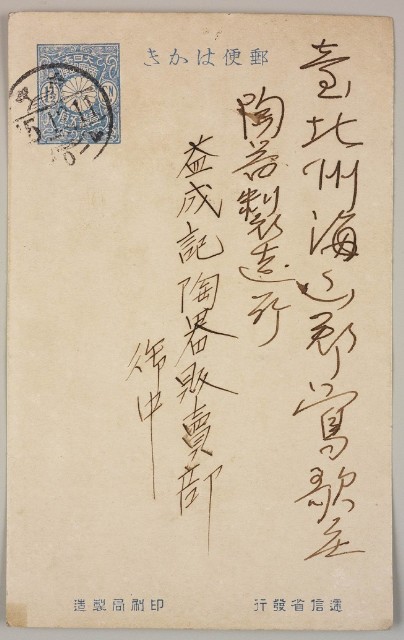 郵便はかき
臺北州海山郡鶯歌庄
陶器製造所
益成記陶器販賣部
御中
遞信省發行
印刷局製造